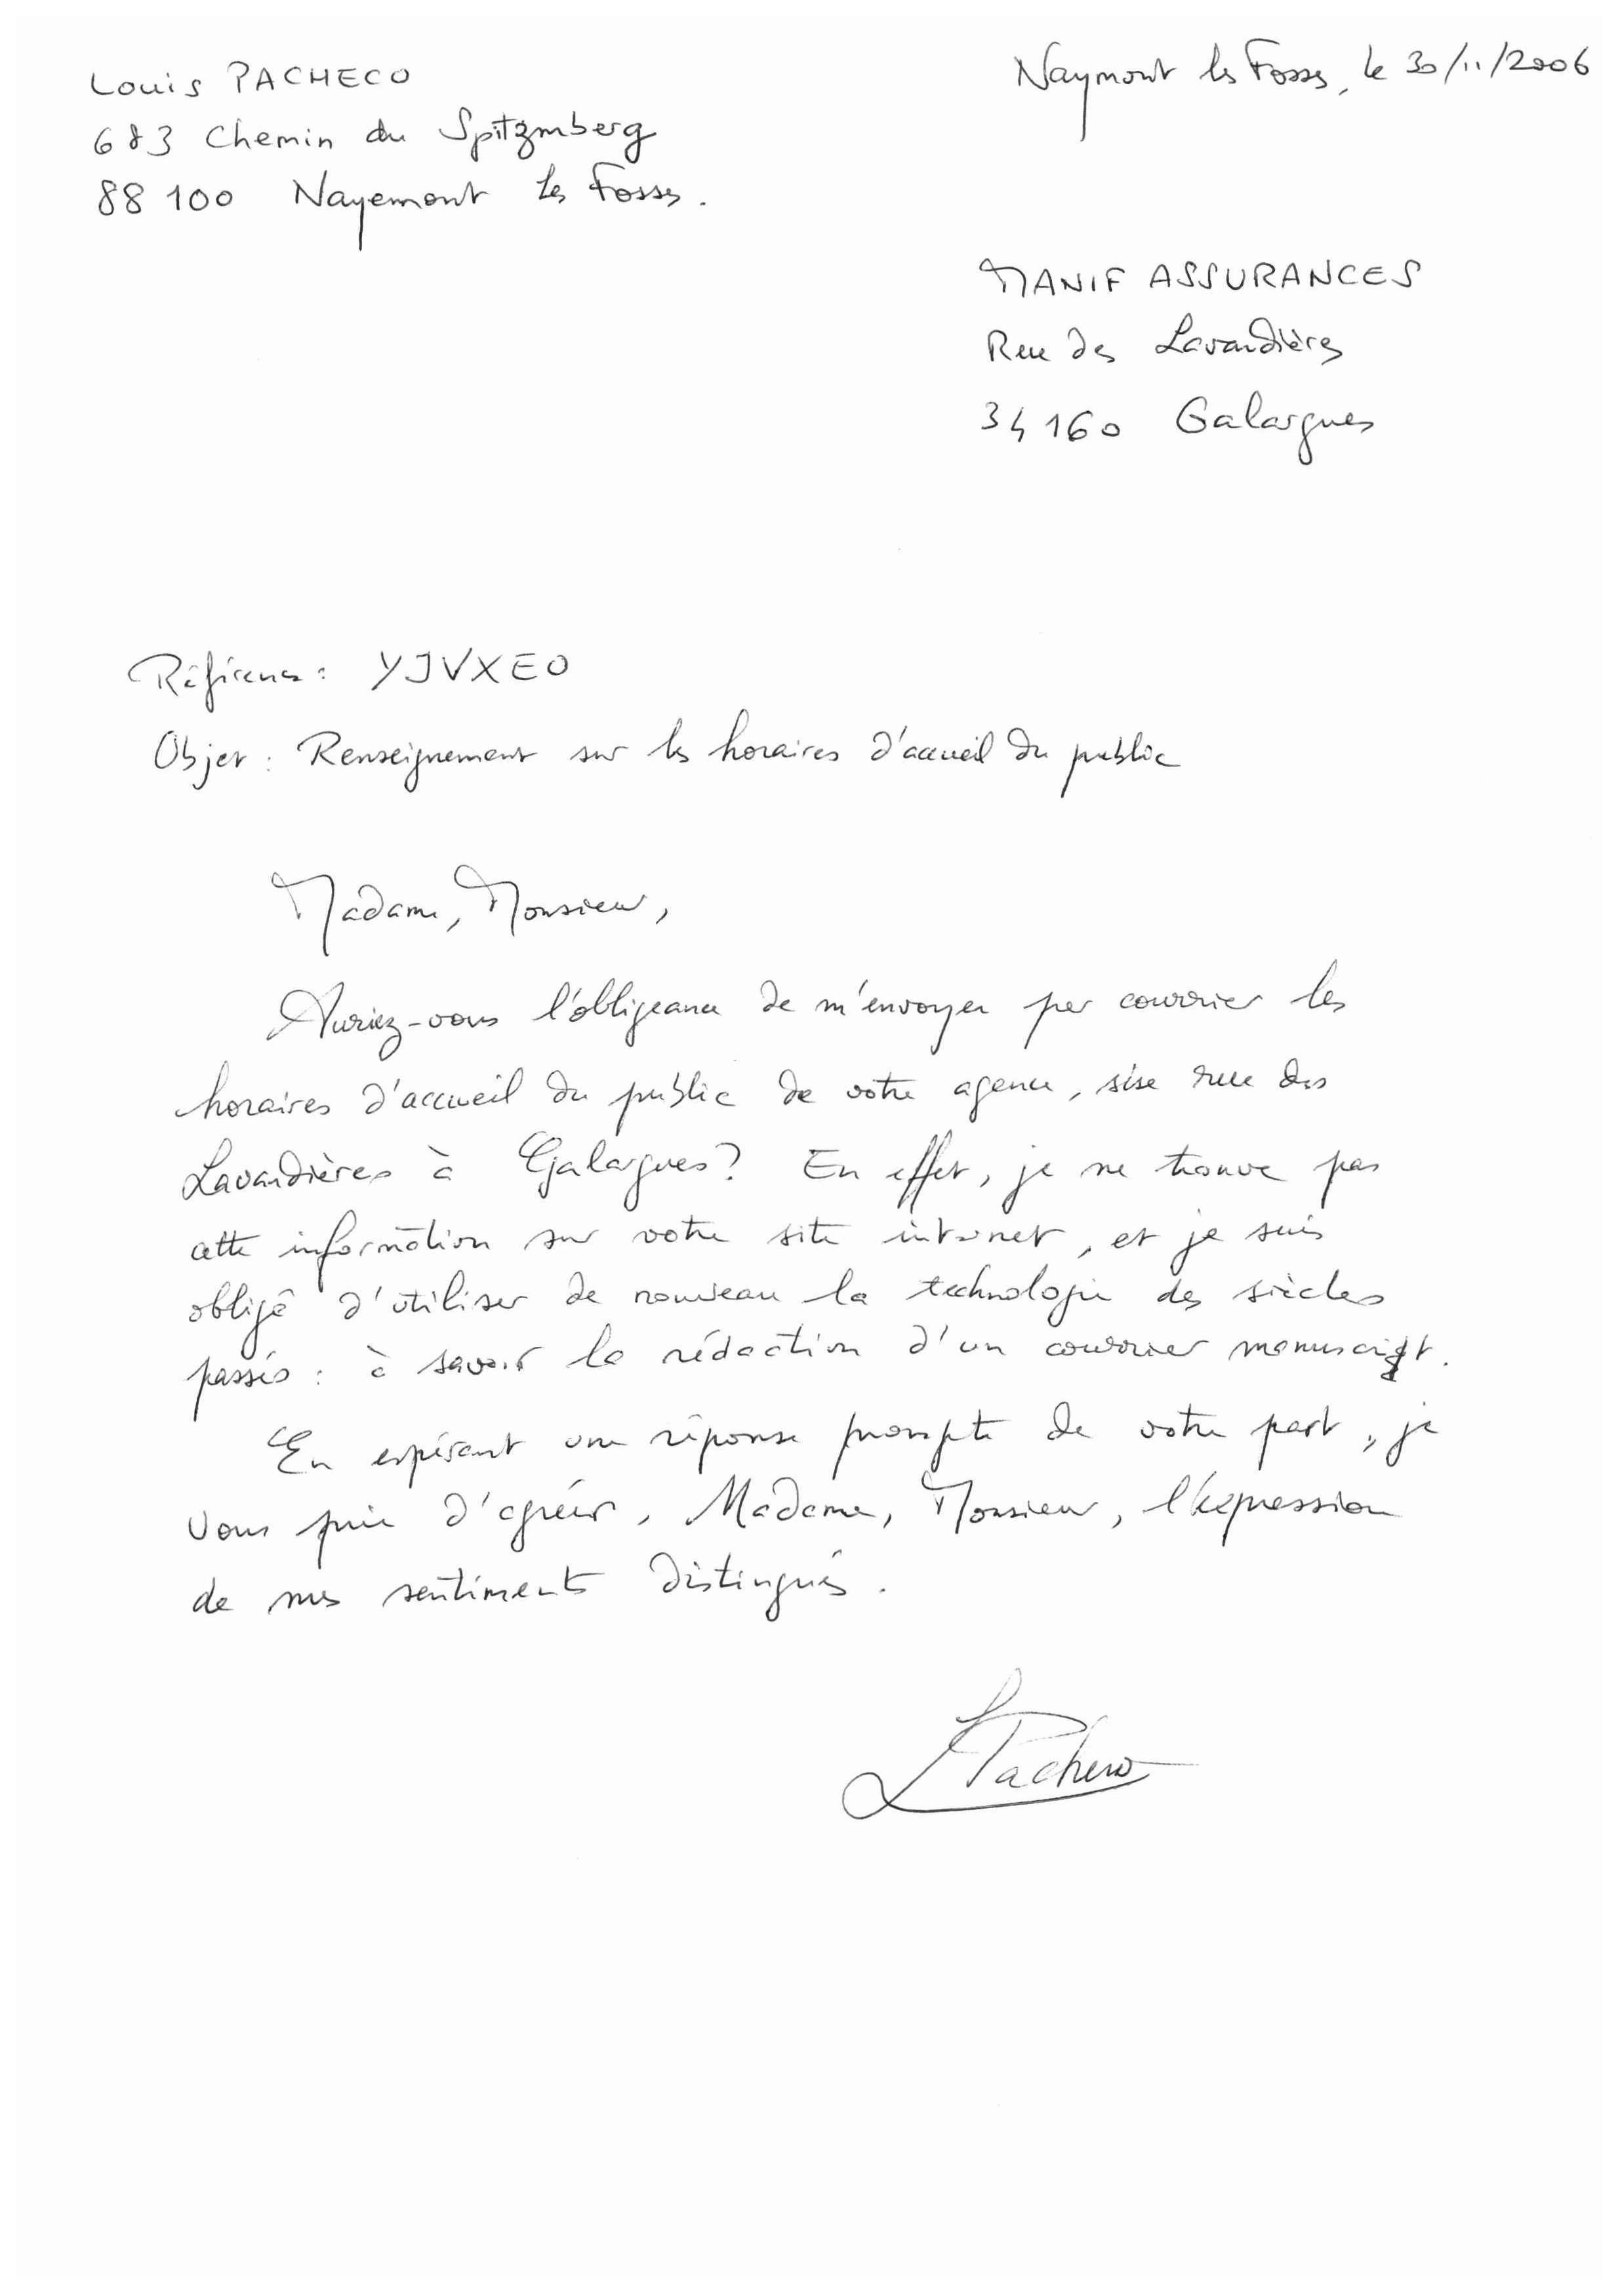 Louis PACHECO
683 Chemin du Spitzmberg
88100 Nayemont les Fosses.
Naymont les Fosses, le 30/11/2006
MANIF ASSURANCES
Rue des Lavandières
34160 Galargues
Référence : YJVXEO
Objet : Renseignement sur les horaires d'accueil du public
Madame, Monsieur,
Auriez-vous l'obligeance de m'envoyer par courrier les
horaires d'accueil du public de votre agence, sise rue des
Lavandières à Galargues ? En effet, je ne trouve pas
cette information sur votre site internet, et je suis
obligé d'utiliser de nouveau la technologie des siècles
passés : à savoir la rédaction d'un courrier manuscript.
En espérant une réponse prompte de votre part, je
vous prie d'agréer, Madame, Monsieur, l'expression
de mes sentiments distingués.
L Pacheco